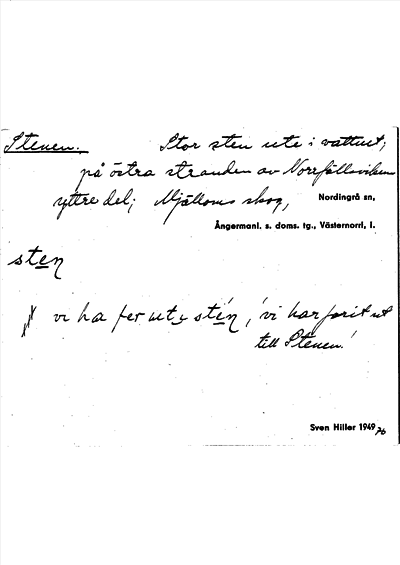 Stenen. Stor sten ute i vattnet;
på östra stranden av Norrfällsvikens
yttre del; Mjälloms skog, Nordingrå sn,
Ångermanl. s. doms. tg., Västernorrl, l.
sten
vi ha fer ut stén, 'vi har farit ut
till Stenen.'
Sven Hiller 1949
76